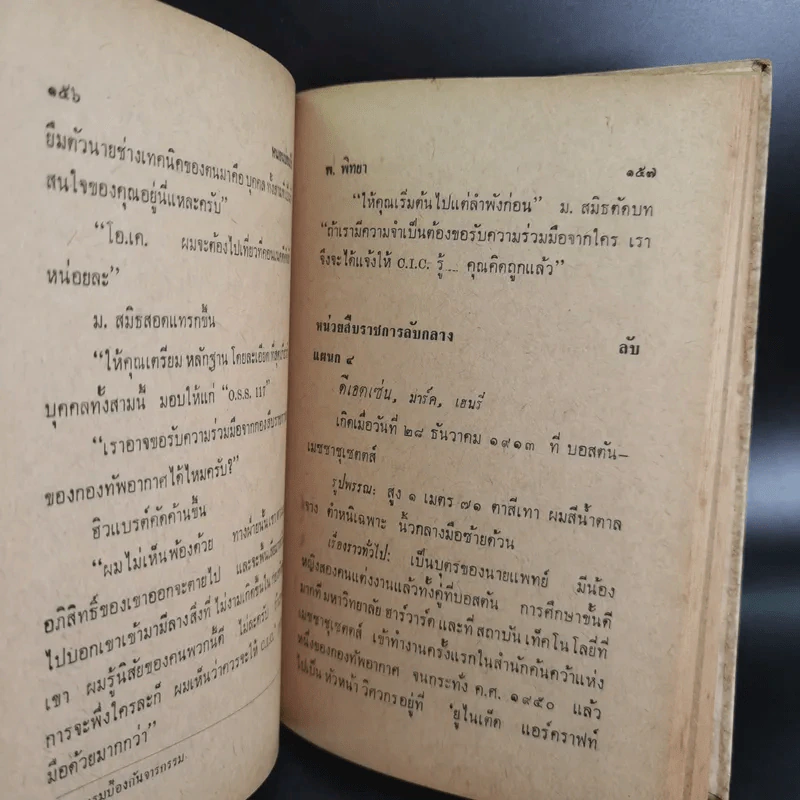 ๑๕๖
ยืมตัวนายช่างเทคนิคของตนมาคือ บุคคล
สนใจของคุณอยู่นี่แหละครับ”
“โอ.เค. ผมจะต้องไปเที่ยวที่
หน่อยละ”
ม. สมิธสอดแทรกขึ้น
“ให้คุณเตรียม หลักฐาน โดยละเอียด
บุคคลทั้งสามนี้ มอบให้แก่ “O.S.S. 117
“เราอาจขอรับความร่วมมือจากกองสืบราชการ
ของกองทัพอากาศได้ไหมครับ?”
ฮิวแบรต์คัดค้านขึ้น
“ผมไม่เห็นพ้องด้วย ทางฝ่ายนั้น
อภิสิทธิ์ของเขาออกจะตายไป และจะ
ไปบอกเขาเข้ามีลางสิ่งที่ ไม่งามเกิดขึ้นใน
เขา ผมรู้นิสัยของคนพวกนี้ดี ไม่ละครับ ถ้า
การจะพึ่งใครละก็ ผมเห็นว่าควรจะให้ C.I.C.
มือด้วยมากกว่า”
รมป้องกันจารกรรม.
พ. พิทยา ๑๕๗
“ให้คุณเริ่มต้นไปแต่ลำพังก่อน” ม. สมิธตัดบท
“ถ้าเรามีความจำเป็นต้องขอรับความร่วมมือจากใคร เรา
จึงจะได้แจ้งให้ C.I.C. รู้... คุณคิดถูกแล้ว”
หน่วยสืบราชการลับกลาง ลับ
แผนก ๔
ดีเอดเซ่น, มาร์ค, เฮนรี่
เกิดเมื่อวันที่ ๒๘ ธันวาคม ๑๙๑๓ ที่ บอสตัน-
เมซซาชูเซตต์ส์
รูปพรรณ: สูง ๑ เมตร ๗๑ ตาสีเทา ผมสีน้ำตาล
จาง ตำหนิเฉพาะ นิ้วกลางมือซ้ายด้วน
เรื่องราวทั่วไป: เป็นบุตรของนายแพทย์ มีน้อง
หญิงสองคนแต่งงานแล้วทั้งคู่ที่บอสตัน การศึกษาขั้นดี
มากที่ มหาวิทยาลัย ฮาร์วาร์ด และที่ สถาบัน เท็คโนโลยีที่
เมซซาชูเซตต์ส์ เข้าทำงานครั้งแรกในสำนักค้นคว้าแห่ง
หนึ่งของกองทัพอากาศ จนกระทั่ง ค.ศ. ๑๙๕๐ แล้ว
ไปเป็น หัวหน้า วิศวกรอยู่ที่ ‘ยูไนเต็ด แอร์คราฟท์